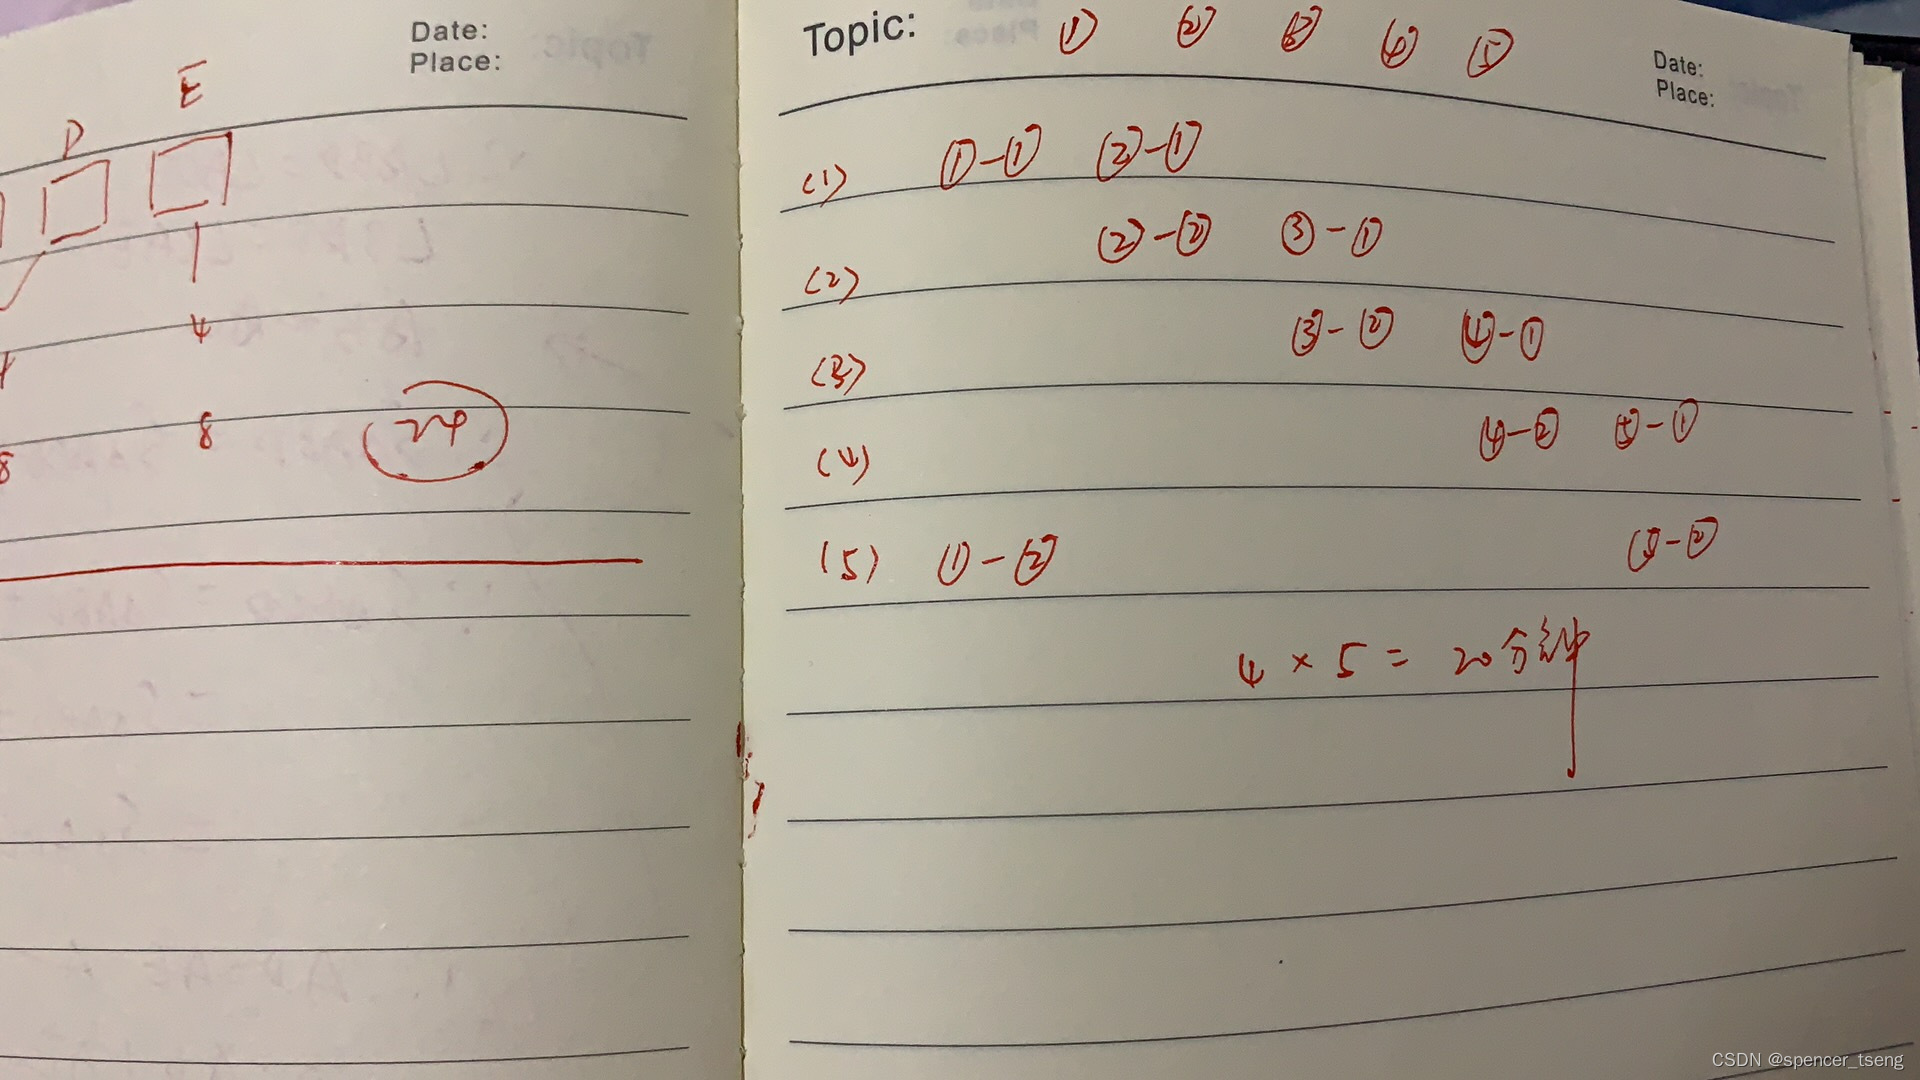 Date:
Place:
E
D
4
8
24
8
Topic: ① ② ③ ④ ⑤
Date:
Place:
(1) ①-① ②-①
(2) ②-② ③-①
(3) ③-② ④-①
(4) ④-② ⑤-①
(5) ①-② ⑤-②
4 × 5 = 20分钟
CSDN @spencer_tseng